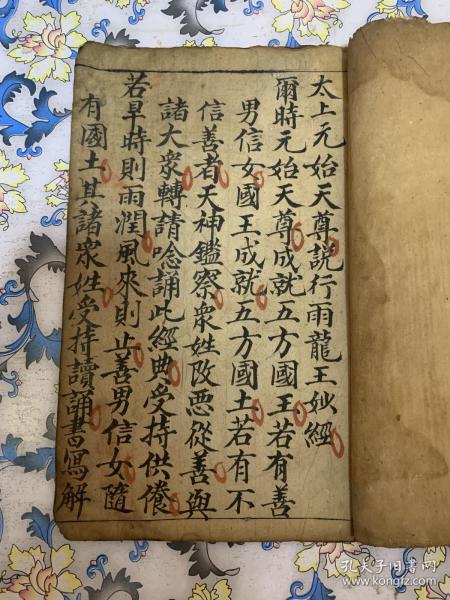 太上元始天尊說行雨龍王妙經
爾時元始天尊成就五方國王若有善
男信女國王成就五方國土若有不
信善者天神鑑察衆姓改悪從善與
諸大衆轉請唸誦此經典受持供飬
若旱時則雨潤風來則止善男信女隨
有國土其諸衆姓受持讀誦書寫解
孔夫子旧书网
www.kongfz.com